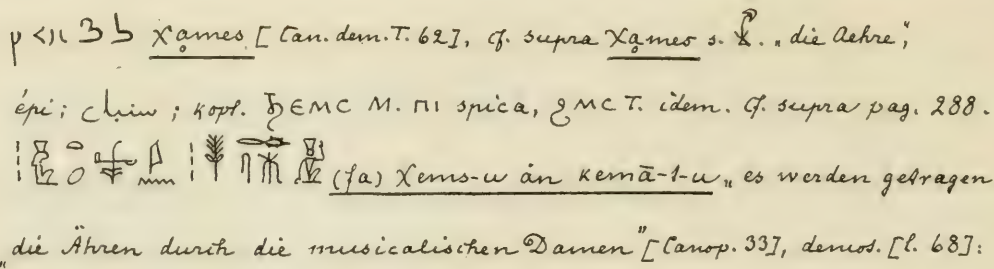 χḁmes [Can. dem. T. 62], cf. supra χḁmes s. „die Aehre”,
épi; kopt. ϦⲈⲘⲤ M. ⲠⲒ spica, ϨⲘⲤ T. idem. Cf. supra pag. 288.
(fa) χems-u ȧn kemā-t-u „es werden getragen
„die Ähren durch die musicalischen Damen” [Canop. 33], demot. [l. 68]: